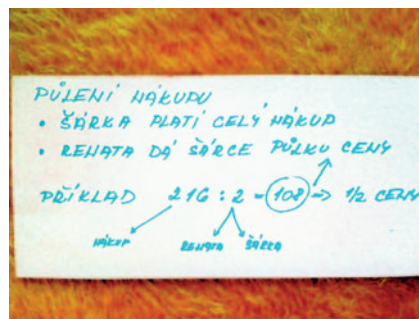 PŮLENÍ NÁKUPU
• ŠÁRKA PLATÍ CELÝ NÁKUP
• RENATA DÁ ŠÁRCE PŮLKU CENY
PŘÍKLAD 216 : 2 = 108 → 1/2 CENY
NÁKUP RENATA ŠÁRKA